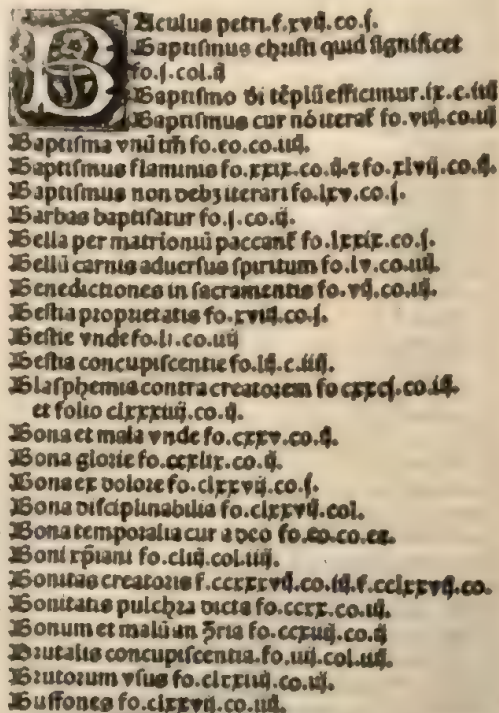 BAculus petri.f.xvij.co.j.
Baptismus christi quid significet
fo.j.col.ij
Baptismo di tēplū efficimur.ix.c.iiij
Baptismus cur nō iterat fo.viij.co.iij
Baptisma vnū tm̄ fo.eo.co.iiij.
Baptismus flaminis fo.xxix.co.ij.⁊ fo.xlvij.co.ij.
Baptismus non debꝫ iterari fo.lxv.co.j.
Barbas baptisatur fo.j.co.ij.
Bella per matrimoniū paccant fo.lxxix.co.j.
Bellū carnis aduersus spiritum fo.lv.co.iiij.
Benedictiones in sacramentis fo.vij.co.iij.
Bestia proprietatis fo.xviij.co.j.
Bestie vnde fo.li.co.iiij
Bestia concupiscentie fo.lij.c.iiij.
Blasphemia contra creatorem fo cxxcj.co.iij.
et folio clxxxiiij.co.ij.
Bona et mala vnde fo.cxxv.co.ij.
Bona glorie fo.ccxlix.co.ij.
Bona ex dolore fo.clxxvij.co.j.
Bona disciplinabilia fo.clxxvij.col.
Bona temporalia cur a deo fo.eo.co.ex.
Boni xp̄iani fo.clij.col.iiij.
Bonitas creatoris f.ccxxxvij.co.iij.f.cclxxvij.co.
Bonitatis pulchra dicta fo.ccxx.co.iij.
Bonum et malū an ꝯria fo.ccxiiij.co.ij
Brutalis concupiscentia.fo.iiij.col.iiij.
Brutorum vsus fo.clxxiiij.co.iij.
Buffones fo.clxxvij.co.iiij.